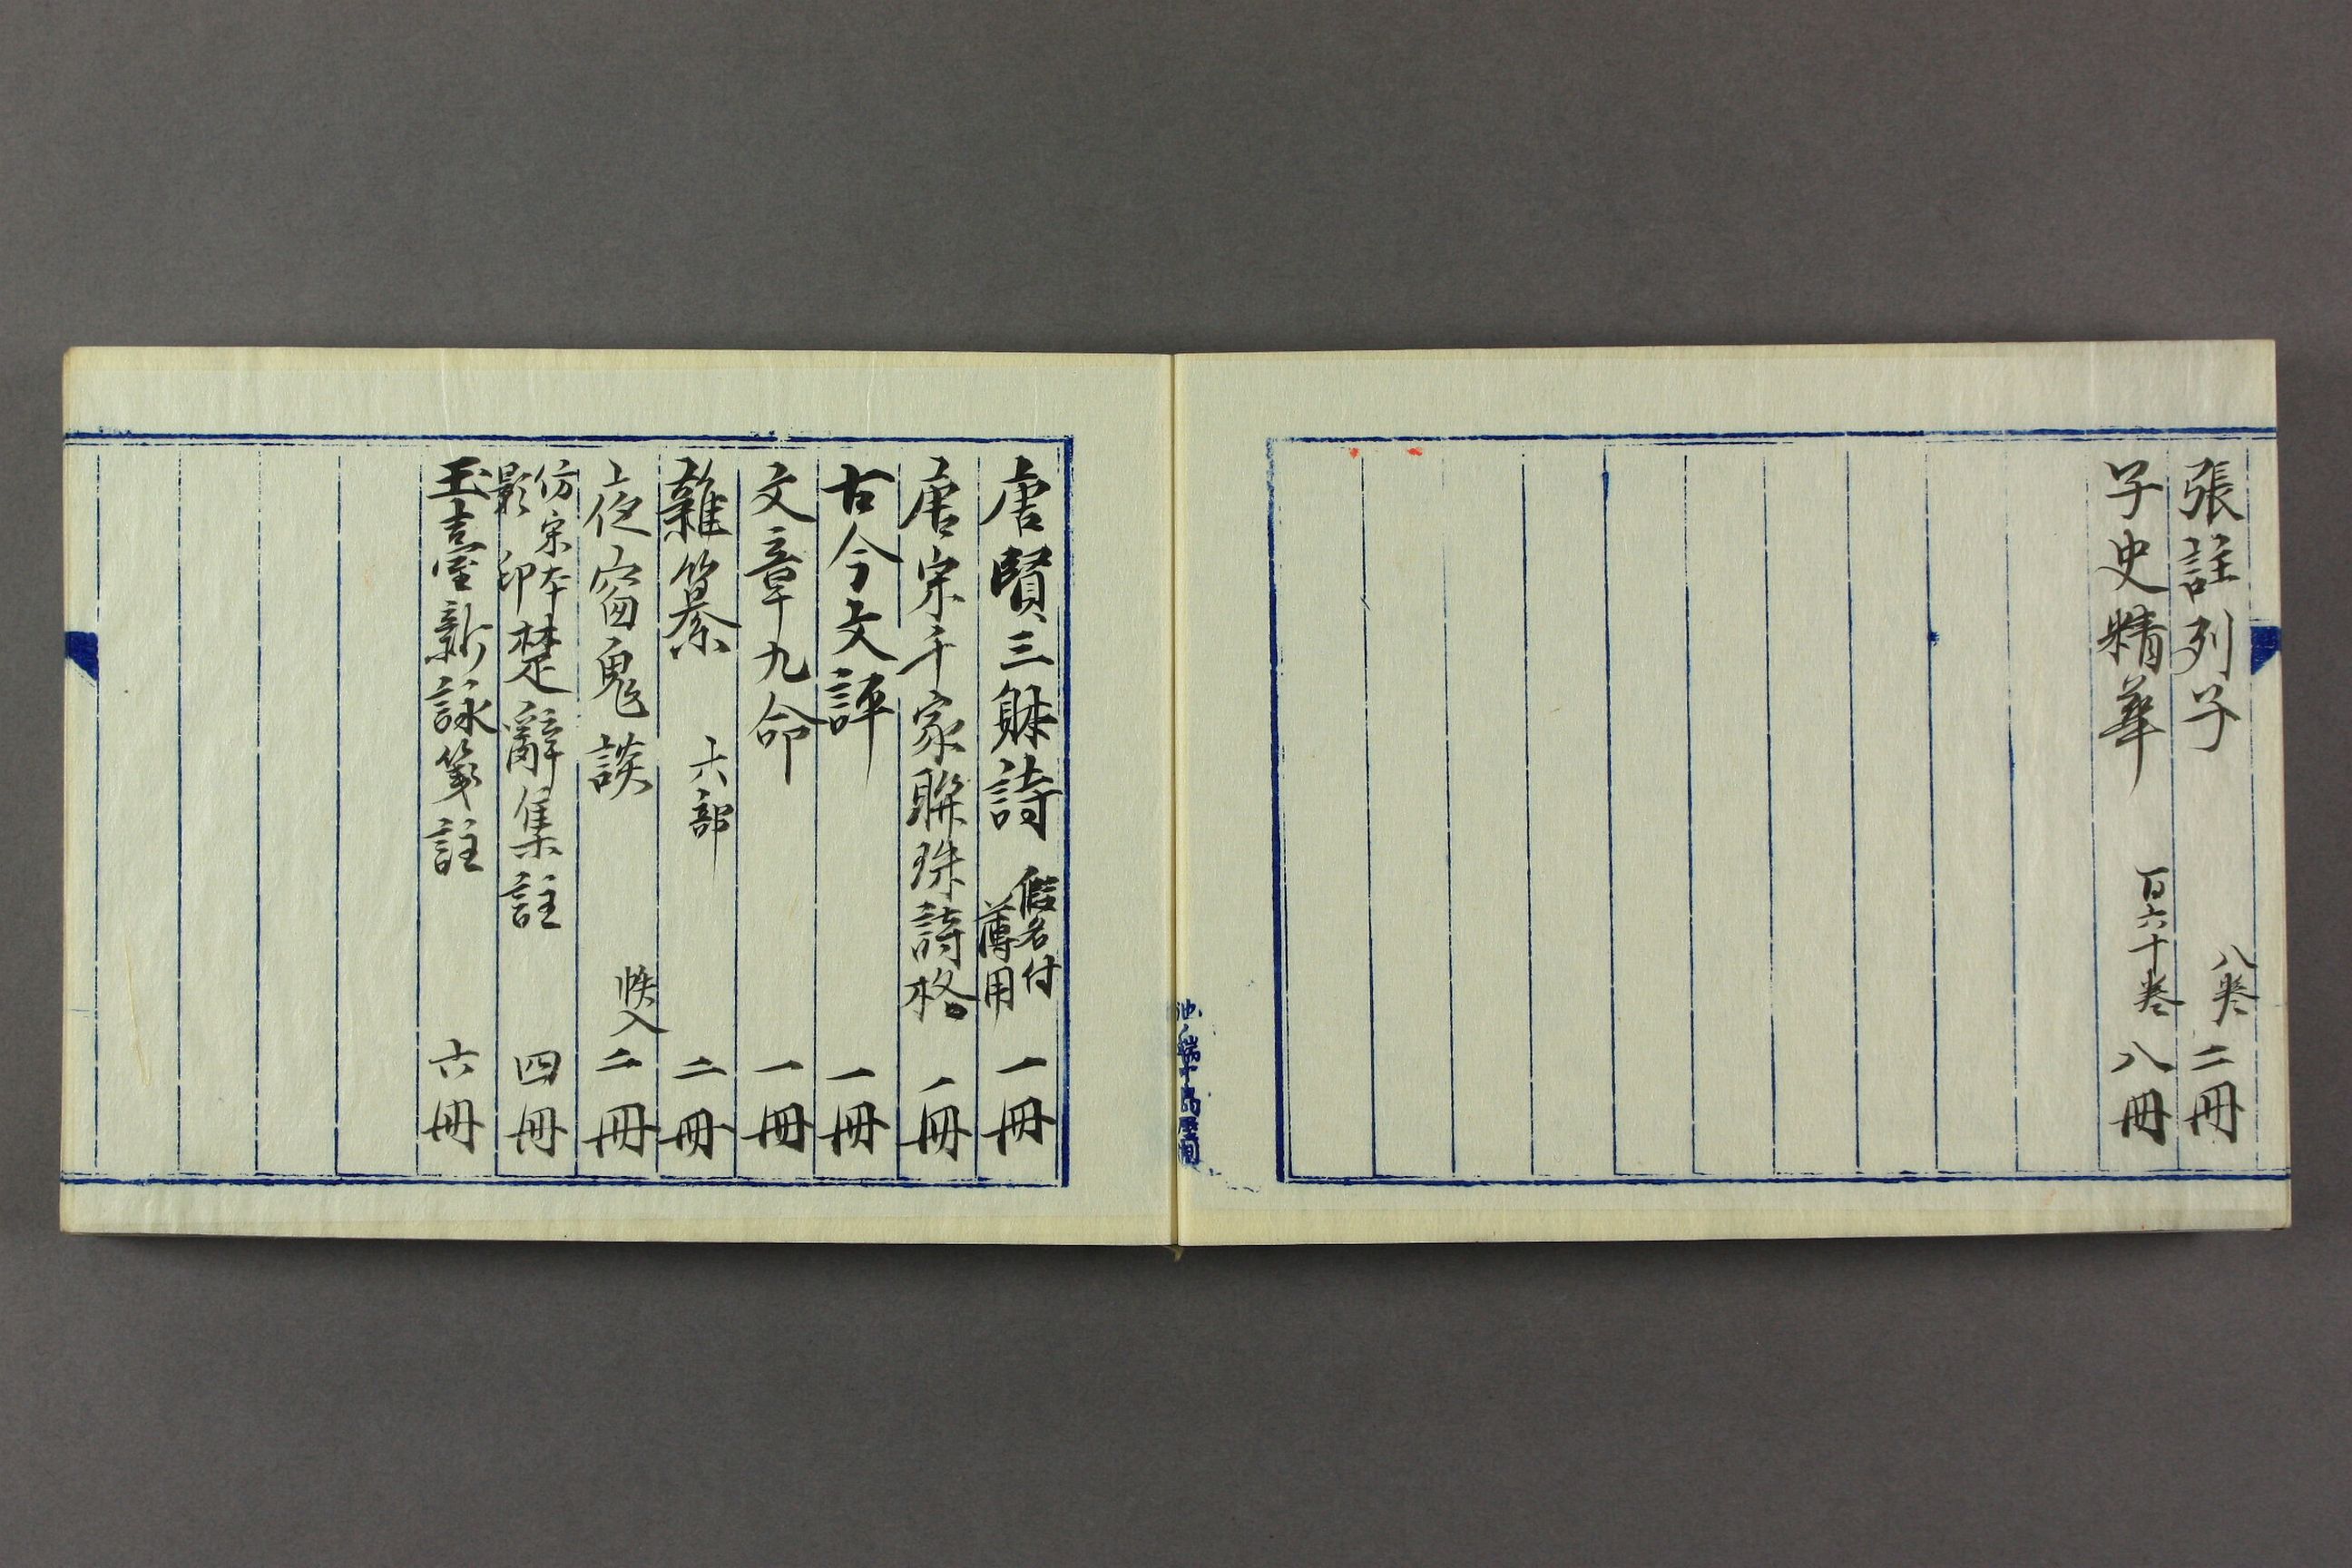 張註列子 八卷 二冊
子史精華 百六十卷 八冊
唐賢三躰詩 假名付 薄用 一冊
唐宋千家聯珠詩格 一冊
古今文評 一冊
文章九命 一冊
雜纂 六部 二冊
夜窗鬼談 帙入 二冊
仿宋本影印楚辭集註 四冊
玉臺新詠箋註 六冊